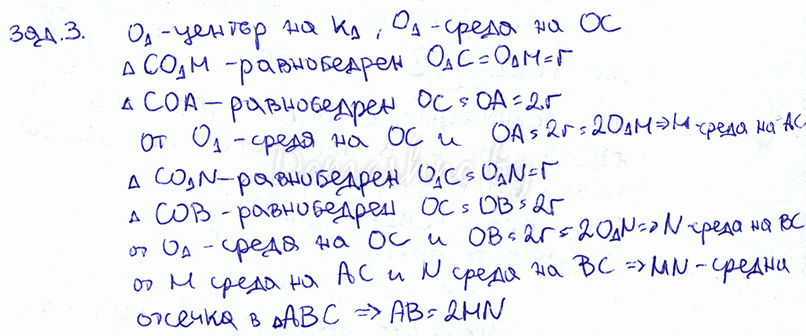 Зад.3. O₁-център на k₁, O₁-среда на OC
△ CO₁M -равнобедрен O₁C=O₁M=r
△ COA-равнобедрен OC=OA=2r
от O₁-среда на OC и OA=2r=2O₁M⇒M-среда на AC
△ CO₁N-равнобедрен O₁C=O₁N=r
△ COB -равнобедрен OC=OB=2r
от O₁-среда на OC и OB=2r=2O₁N⇒N-среда на BC
от M среда на AC и N среда на BC ⇒MN-средна
отсечка в △ABC ⇒ AB=2MN